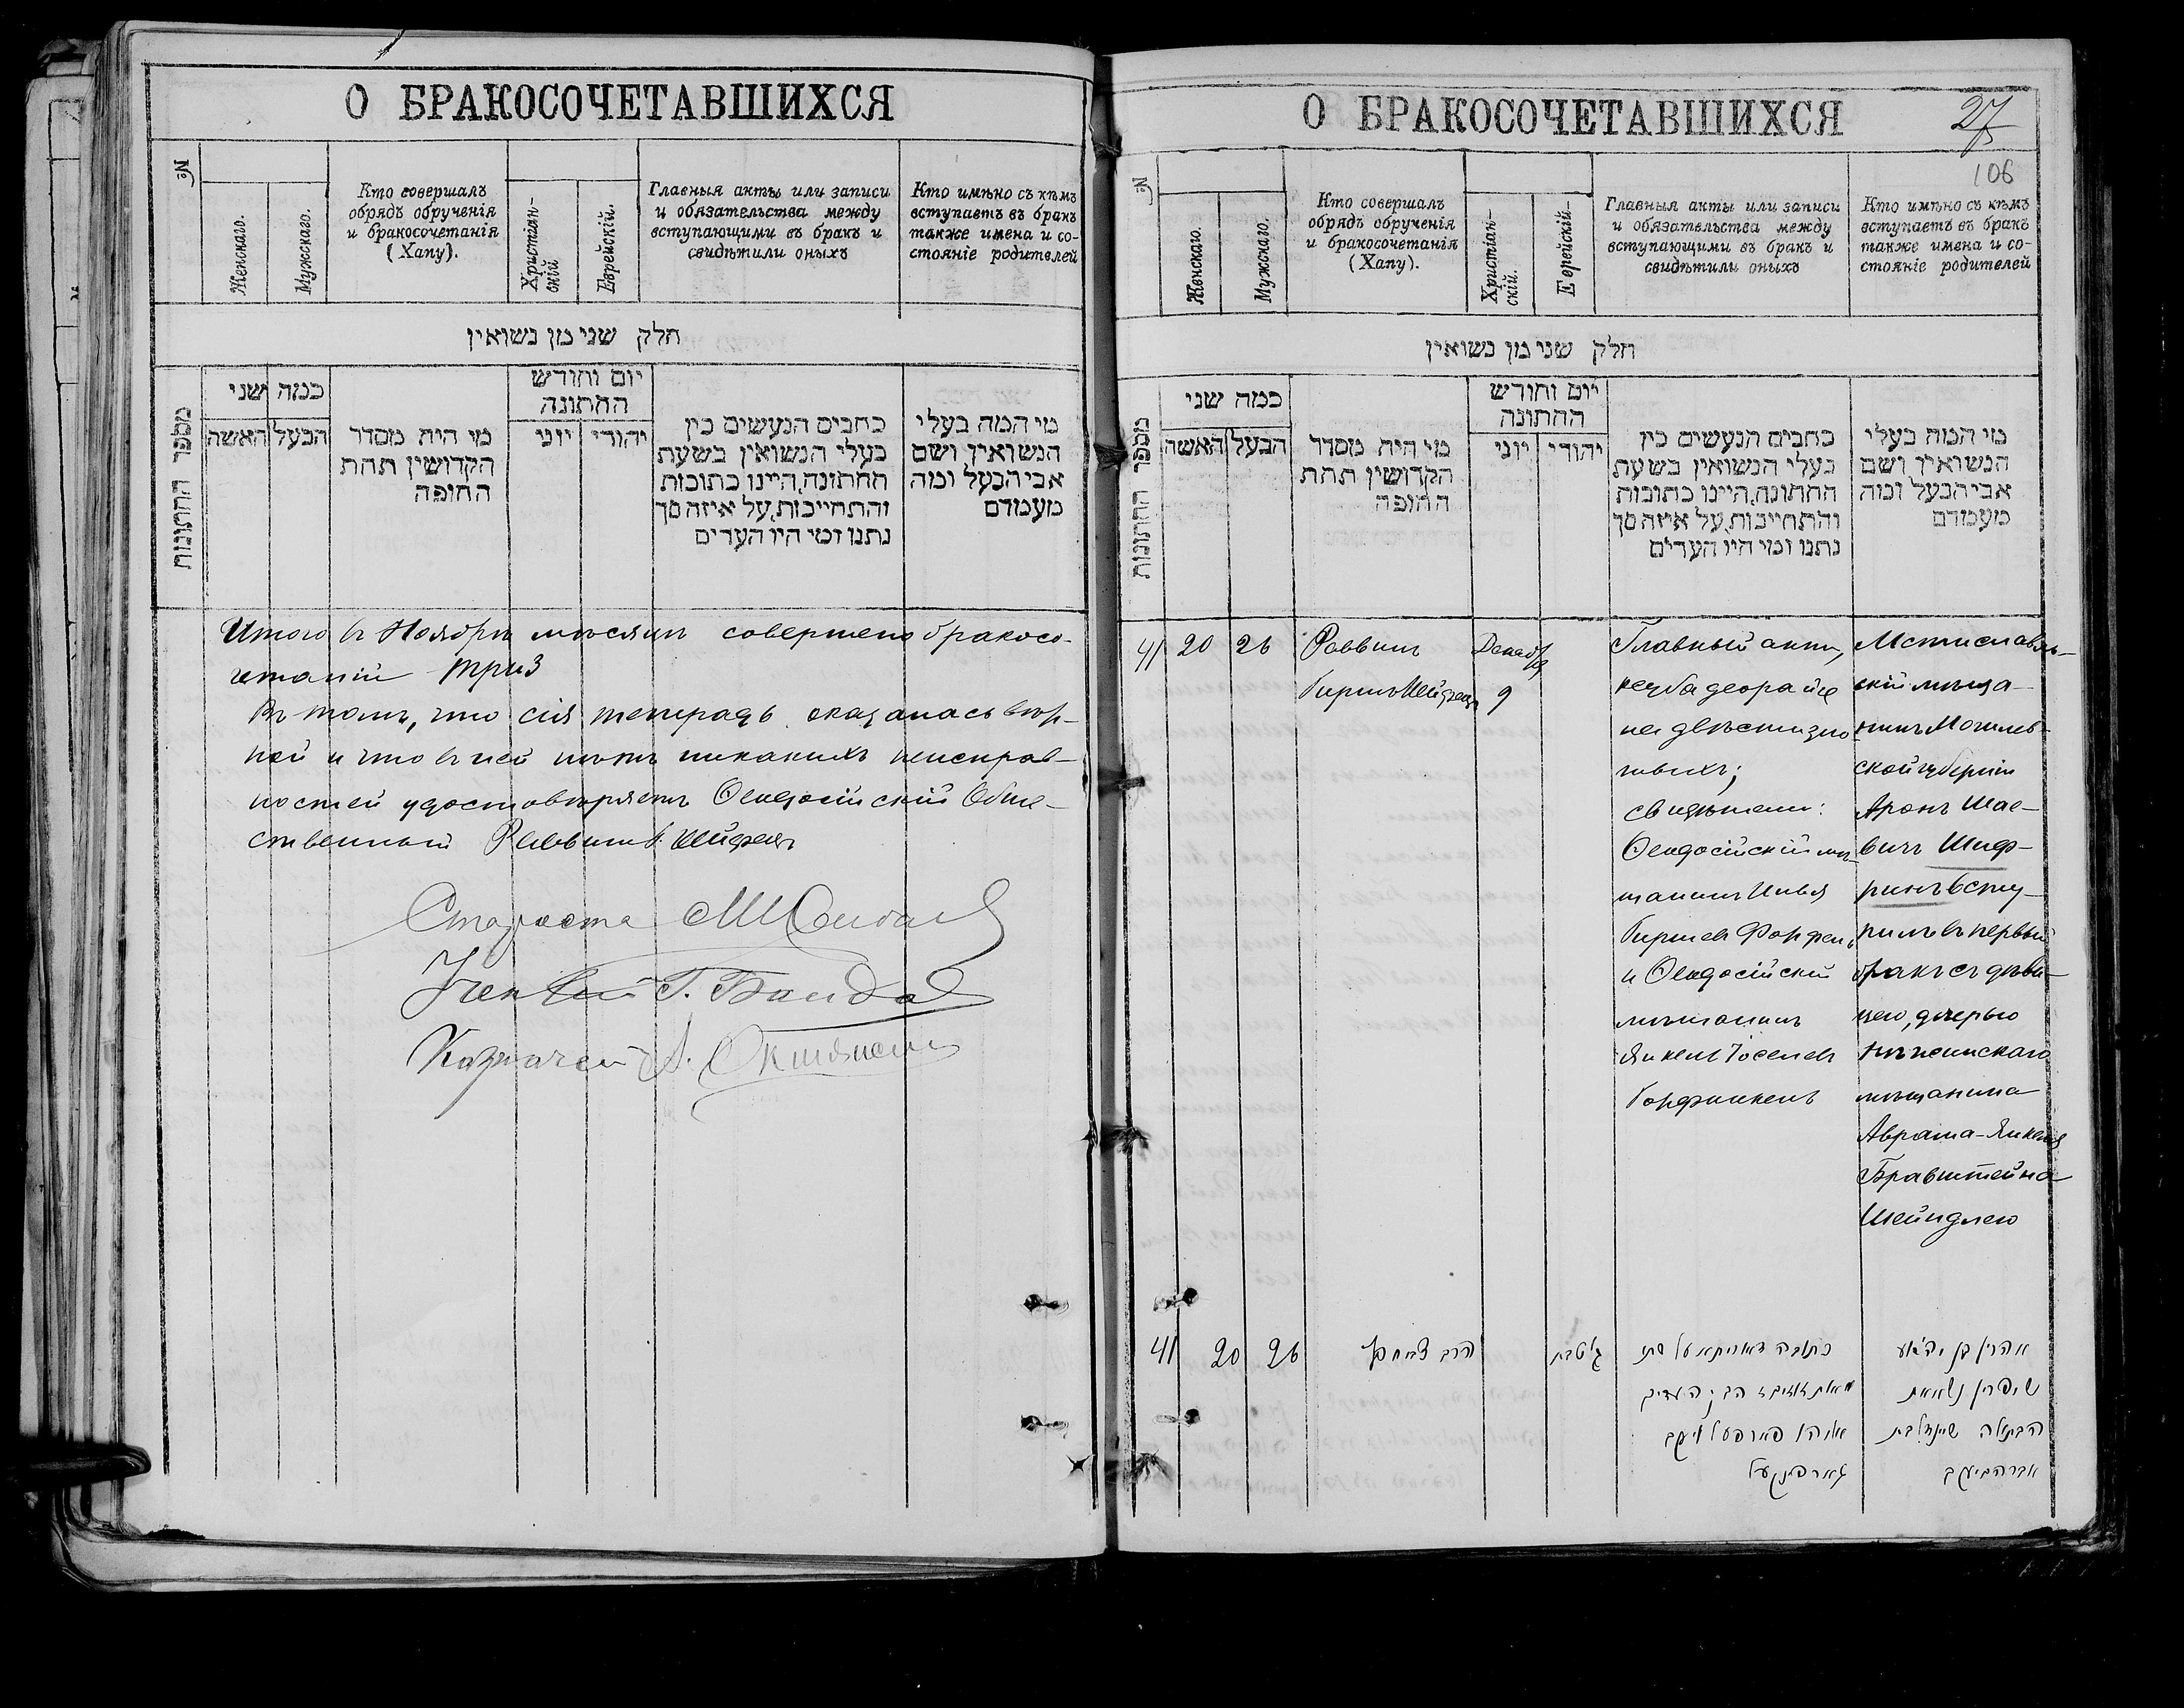 О БРАКОСОЧЕТАВШИХСЯ
№
Женскаго.
Мужскаго.
Кто совершалъ
обрядъ обрученія
и бракосочетанія
(Хапу).
Христіан-
скій
Еврейскій.
Главныя акты или записи
и обязательства между
вступающими въ бракъ и
свидѣтили оныхъ
Кто имѣно съ кѣмъ
вступаетъ въ бракъ
также имена и со-
стояніе родителей
חלק שני מן נשואין
מספר החתונות
כמה שני
האשה
הבעל
מי היה מסדר
הקדושין תחת
החופה
יום וחודש
החתונה
יוני
יהודי
כתבים הנעשים בין
בעלי הנשואין בשעת
החתונה, היינו כתובות
והתחייבות, על איזה סך
נתנו ומי היו העדים
מי המה בעלי
הנשואין ושם
אבי הבעל ומה
מעמדם
Итого въ Ноябрѣ мѣсяцѣ совершено бракосо-
четаній три 3
Въ томъ, что сія тетрадь оказалась вѣр-
ной и что въ ней нѣтъ никакихъ неисправ-
ностей удостовѣряетъ Ѳеодосійскій Обще-
ственный Раввинъ Б. Шейфецъ
Староста
Ученый Г.
Казначей А.
О БРАКОСОЧЕТАВШИХСЯ
27
106
№
Женскаго.
Мужскаго.
Кто совершалъ
обрядъ обрученія
и бракосочетанія
(Хапу).
Христіан-
скій.
Еврейскій
Главныя акты или записи
и обязательства между
вступающими въ бракъ и
свидѣтили оныхъ
Кто имѣно съ кѣмъ
вступаетъ въ бракъ
также имена и со-
стояніе родителей
חלק שני מן נשואין
מספר החתונות
כמה שני
האשה
הבעל
מי היה מסדר
הקדושין תחת
החופה
יום וחודש
החתונה
יוני
יהודי
כתבים הנעשים בין
בעלי הנשואין בשעת
החתונה, היינו כתובות
והתחייבות, על איזה סך
נתנו ומי היו העדים
מי המה בעלי
הנשואין ושם
אבי הבעל ומה
מעמדם
41 20 26
Раввинъ
Гиршъ Шейфецъ
Декабря
9
Главный актъ,
кецба деорайсе
на двѣсти зло-
тыхъ;
свидѣтели:
Ѳеодосійскій мѣ-
щанинъ
Гиршевъ
и Ѳеодосійскій
мѣщанинъ
Янкель Іоселевъ
Горфинкель
Мстиславль-
скій мѣща-
нинъ Могилев-
ской губерніи
Аронъ Шае-
вичъ Шиф-
ринъ всту-
пилъ въ первый
бракъ съ дѣви-
цею, дочерью
Нѣжинскаго
мѣщанина
Аврама-Янкеля
Бравштейна
Шейндлею
41 20 26
הרב
ג' טבת
כתובה דאורייתא על סך
מאתים
יעקב
גארפינקעל
אהרן בן
שיפרין נשא את
הבתולה שיינדל בת
אברהם יעקב